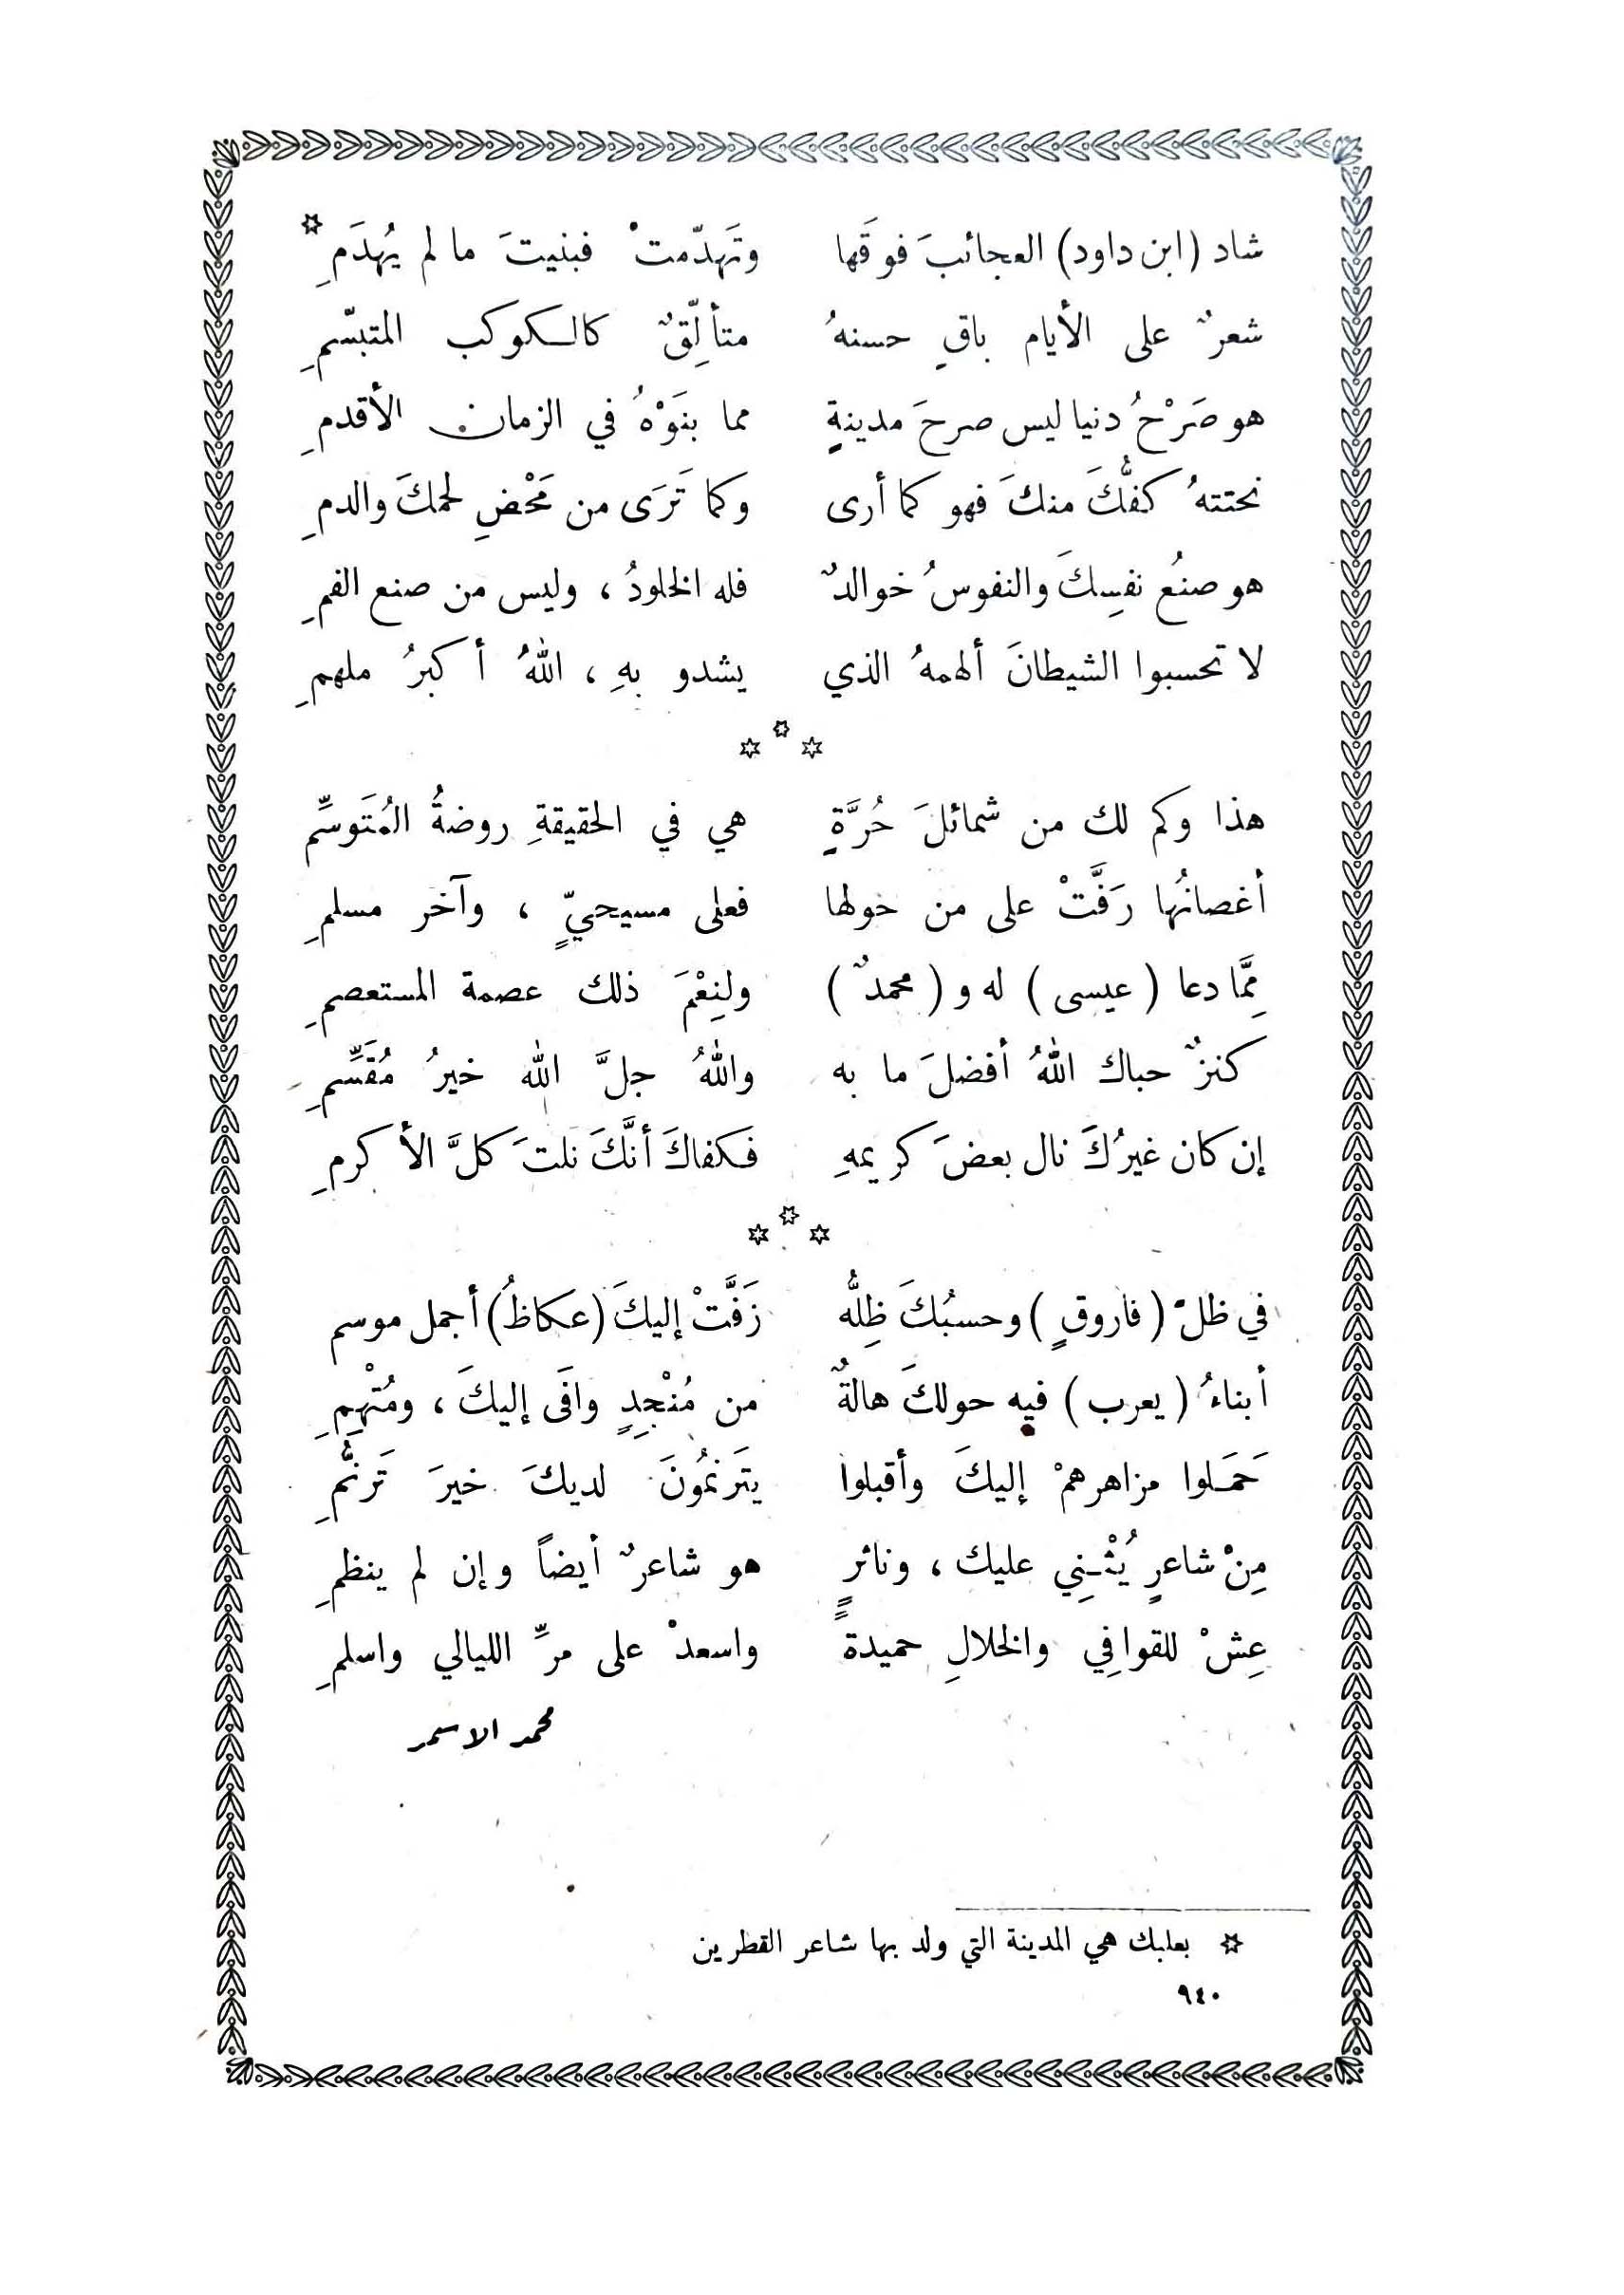 شاد (ابن داود) العجائبَ فوقَها وتَهدّمتْ فبنيتَ ما لم يُهدَمِ *
شعرٌ على الأيام باقٍ حسنهُ متألِّقٌ كالكوكب المتبسّمِ
هو صَرْحُ دنيا ليس صرحَ مدينةٍ مما بنَوْهُ في الزمان الأقدمِ
نحتتهُ كفُّكَ منكَ فهو كما أرى وكما تَرَى من مَحْضِ لحمكَ والدمِ
هو صنعُ نفسِكَ والنفوسُ خوالدٌ فله الخلودُ ، وليس من صنع الفمِ
لا تحسبوا الشيطانَ ألهمهُ الذي يشدو بهِ ، اللهُ أكبرُ ملهمِ
* * *
هذا وكم لك من شمائلَ حُرَّةٍ هي في الحقيقةِ روضةُ المُتَوسِّم
أغصانُها رَفَّتْ على من حولها فعلى مسيحيٍّ ، وآخر مسلمِ
مِمَّا دعا ( عيسى ) له و ( محمدٌ ) ولنِعْمَ ذلك عصمة المستعصمِ
كنزٌ حباك اللهُ أفضلَ ما به واللهُ جلَّ الله خيرُ مُقَسِّمِ
إن كان غيرُكَ نال بعضَ كريمهِ فكفاكَ أنَّكَ نلتَ كلَّ الأكرمِ
* * *
في ظلّ ( فاروقٍ ) وحسبُكَ ظِلُّه زَفَّتْ إليكَ (عكاظُ) أجمل موسم
أبناءُ ( يعرب ) فيه حولكَ هالةٌ من مُنْجِدٍ وافَى إليكَ ، ومُتْهِمِ
حَمَلوا مزاهرهمْ إليكَ وأقبلوا يتَرنمُونَ لديكَ خيرَ تَرنُّمِ
مِنْ شاعرٍ يُثْنِي عليك ، وناثرٍ هو شاعرٌ أيضاً وإن لم ينظمِ
عِشْ للقوافِي والخلالِ حميدةً واسعدْ على مرِّ الليالي واسلمِ
محمد الاسمر
* بعلبك هي المدينة التي ولد بها شاعر القطرين
٩٤٠